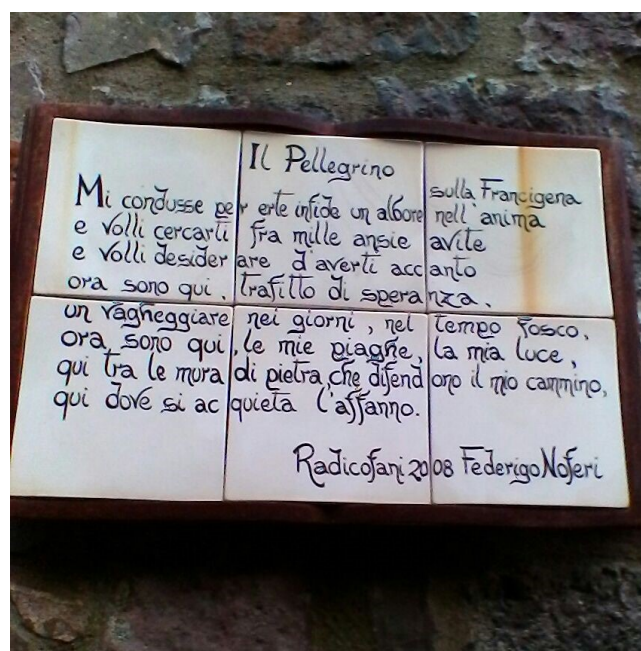 Il Pellegrino
sulla Francigena
Mi condusse per erte infide un albore nell'anima
e volli cercarti fra mille ansie avite
e volli desiderare d'averti accanto
ora sono qui, trafitto di speranza.
un vagheggiare nei giorni, nel tempo fosco,
ora sono qui, le mie piaghe, la mia luce,
qui tra le mura di pietra, che difendono il mio cammino,
qui dove si acquieta l'affanno.
Radicofani 2008 Federigo Noferi